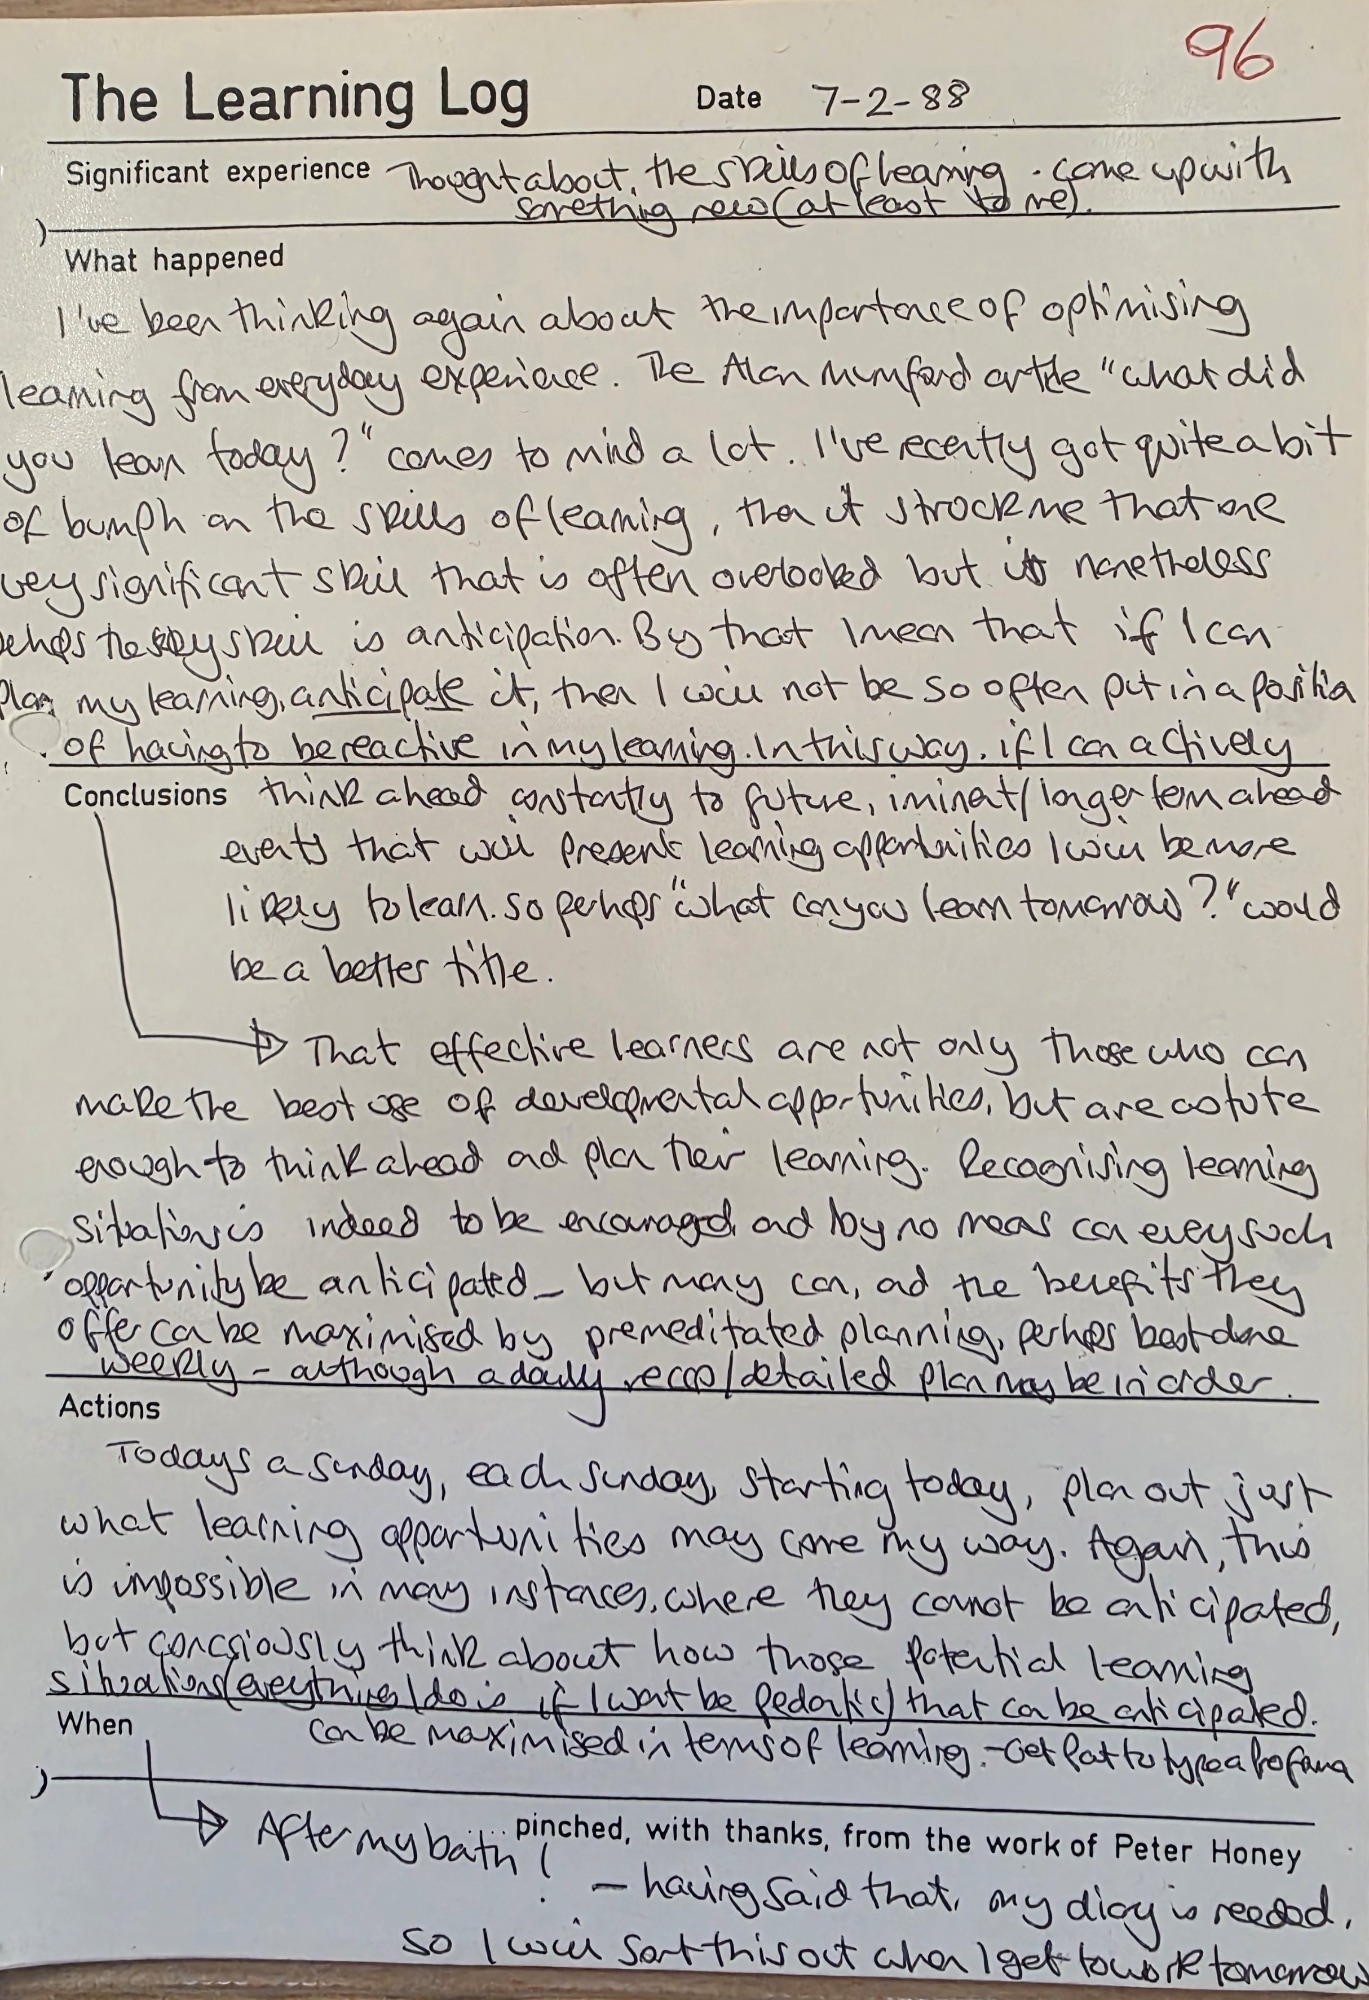 96
The Learning Log Date 7-2-88
Significant experience Thought about, the skills of learning. come up with
something new (at least to me).
What happened
I've been thinking again about the importance of optimising
learning from everyday experience. The Alan Mumford article "what did
you learn today?" comes to mind a lot. I've recently got quite a bit
of bumph on the skills of learning, then it struck me that one
very significant skill that is often overlooked but is nonetheless
perhaps the key skill is anticipation. By that I mean that if I can
plan my learning, anticipate it, then I will not be so often put in a position
of having to be reactive in my learning. In this way, if I can actively
Conclusions think ahead constantly to future, iminent/longer term ahead
events that will present learning opportunities I will be more
likely to learn. so perhaps "what can you learn tomorrow?" would
be a better title.
That effective learners are not only those who can
make the best use of developmental opportunities, but are astute
enough to think ahead and plan their learning. Recognising learning
situations is indeed to be encouraged, and by no means can every such
opportunity be anticipated - but many can, and the benefits they
offer can be maximised by premeditated planning, perhaps best done
weekly - although a daily recap/detailed plan may be in order.
Actions
Todays a sunday, each sunday, starting today, plan out just
what learning opportunities may come my way. Again, this
is impossible in many instances, where they cannot be anticipated,
but concsiously think about how those potential learning
situations (everything I do is if I want be pedantic) that can be anticipated.
When can be maximised in terms of learning. - Get Pat to type a proforma
After my bath! pinched, with thanks, from the work of Peter Honey
- having said that, my diary is needed,
so I will sort this out when I get to work tomorrow